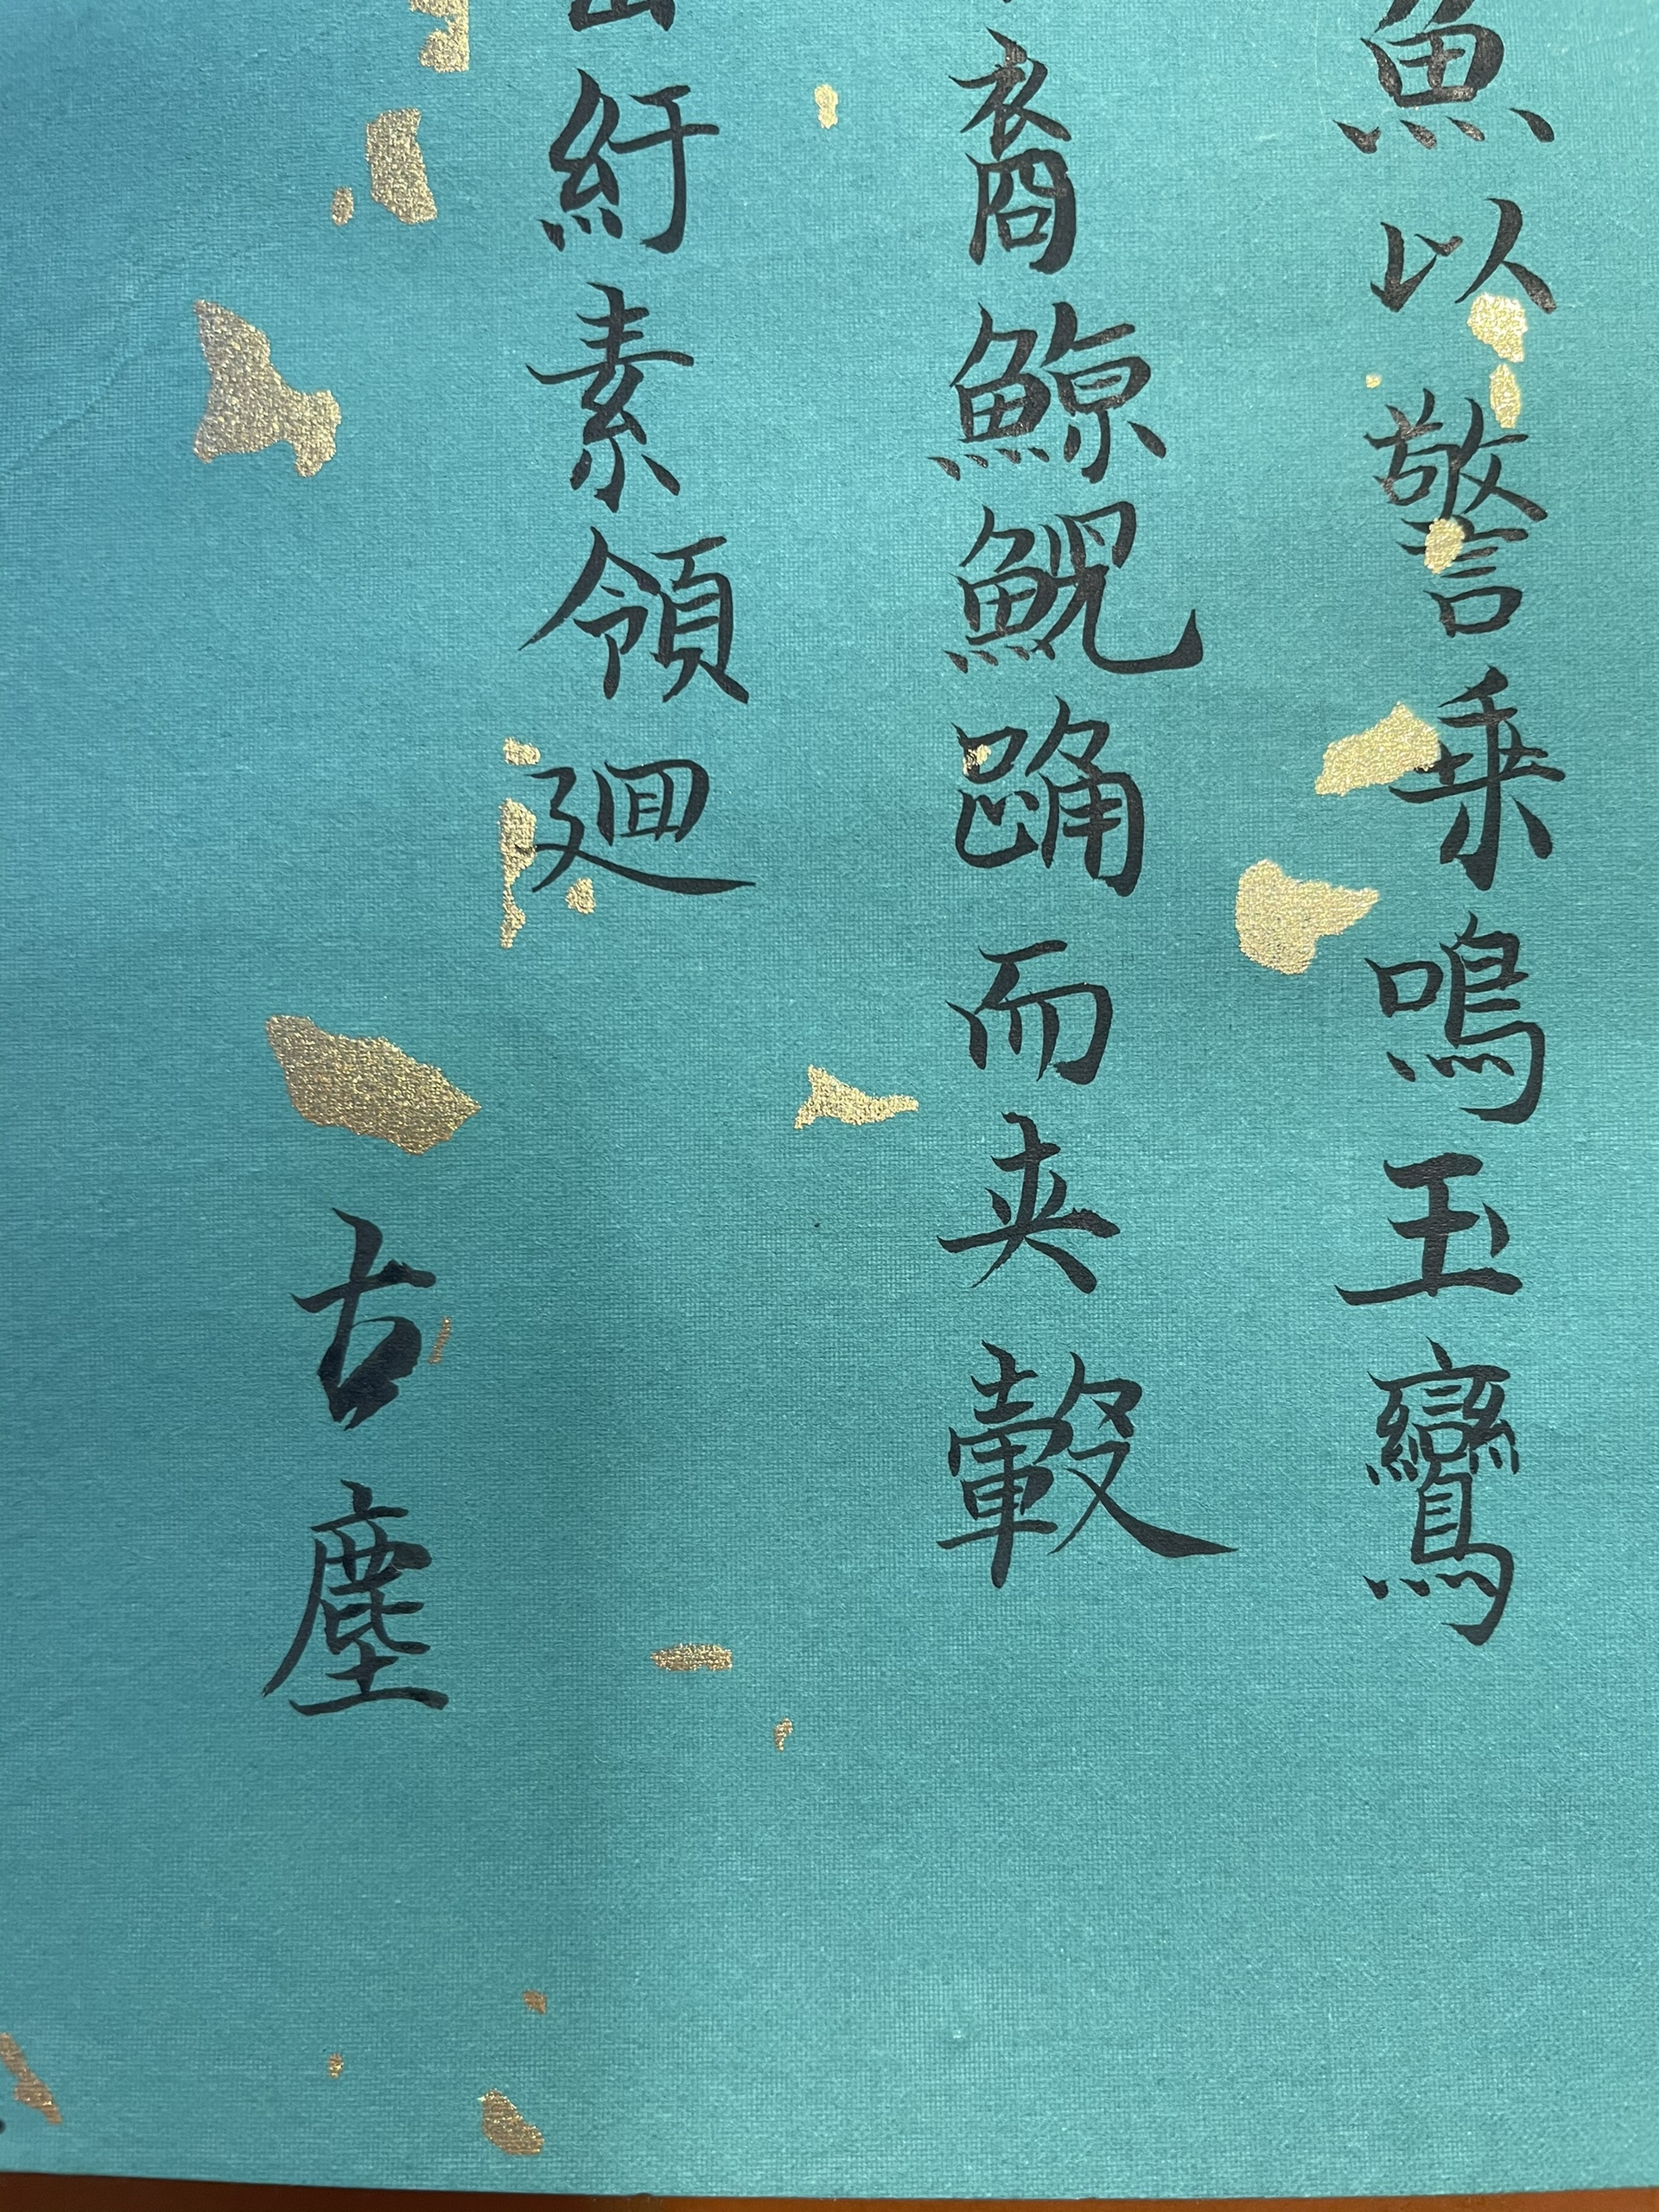 魚以警乗鳴玉鸞
裔鯨鯢踴而夾轂
紆素領廻
古塵